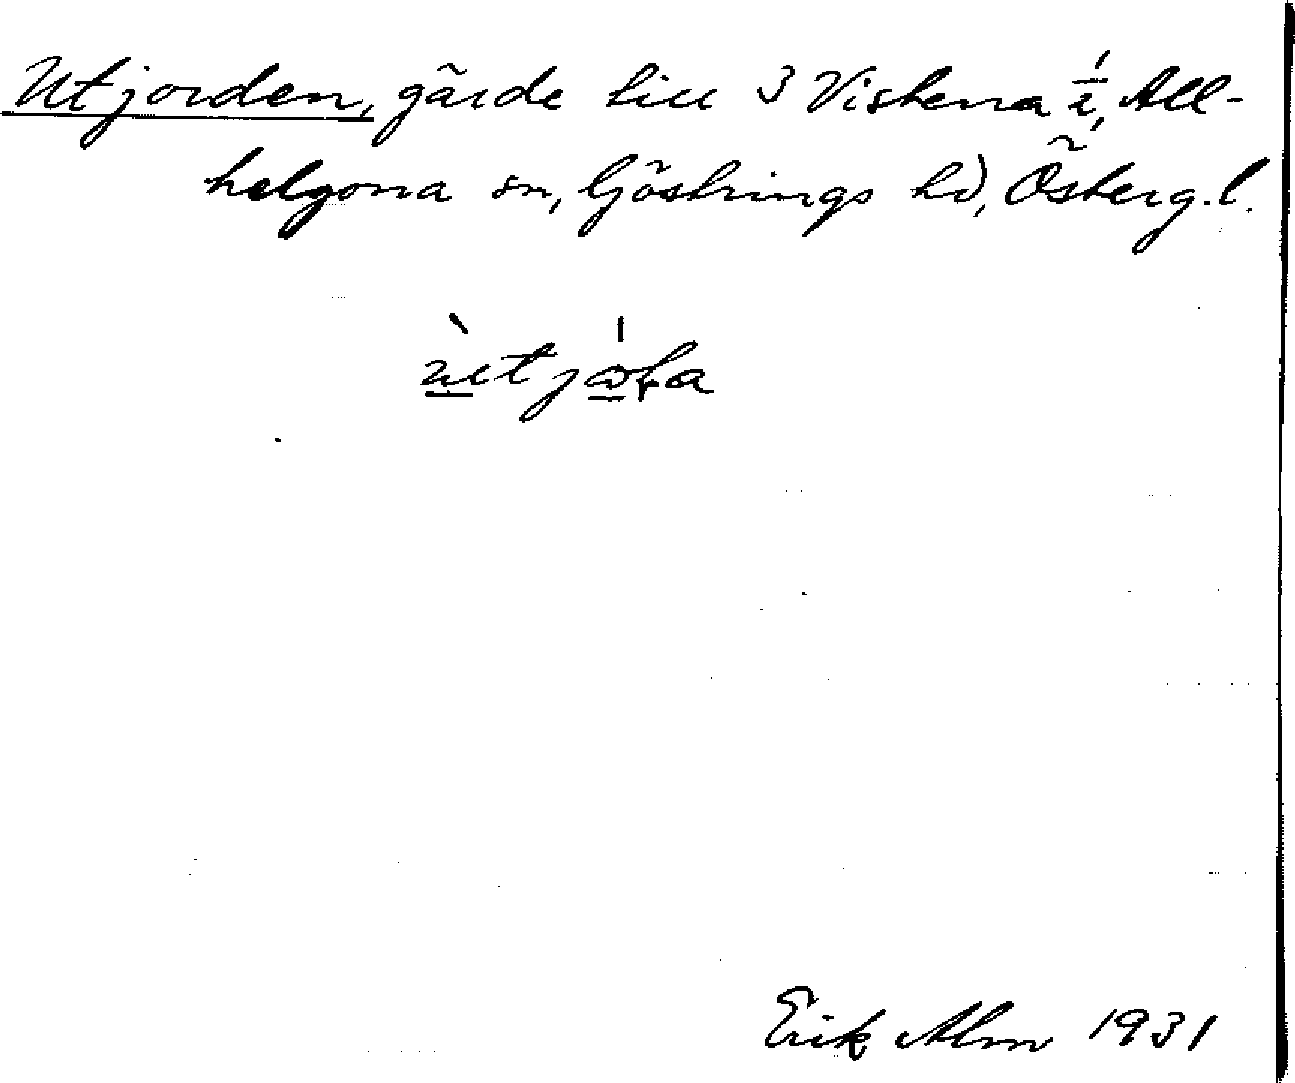 Utjorden, gärde till 3 Vistena 1/2, All-
helgona sn, Göstrings hd, Österg.l.
Erik Alm 1931